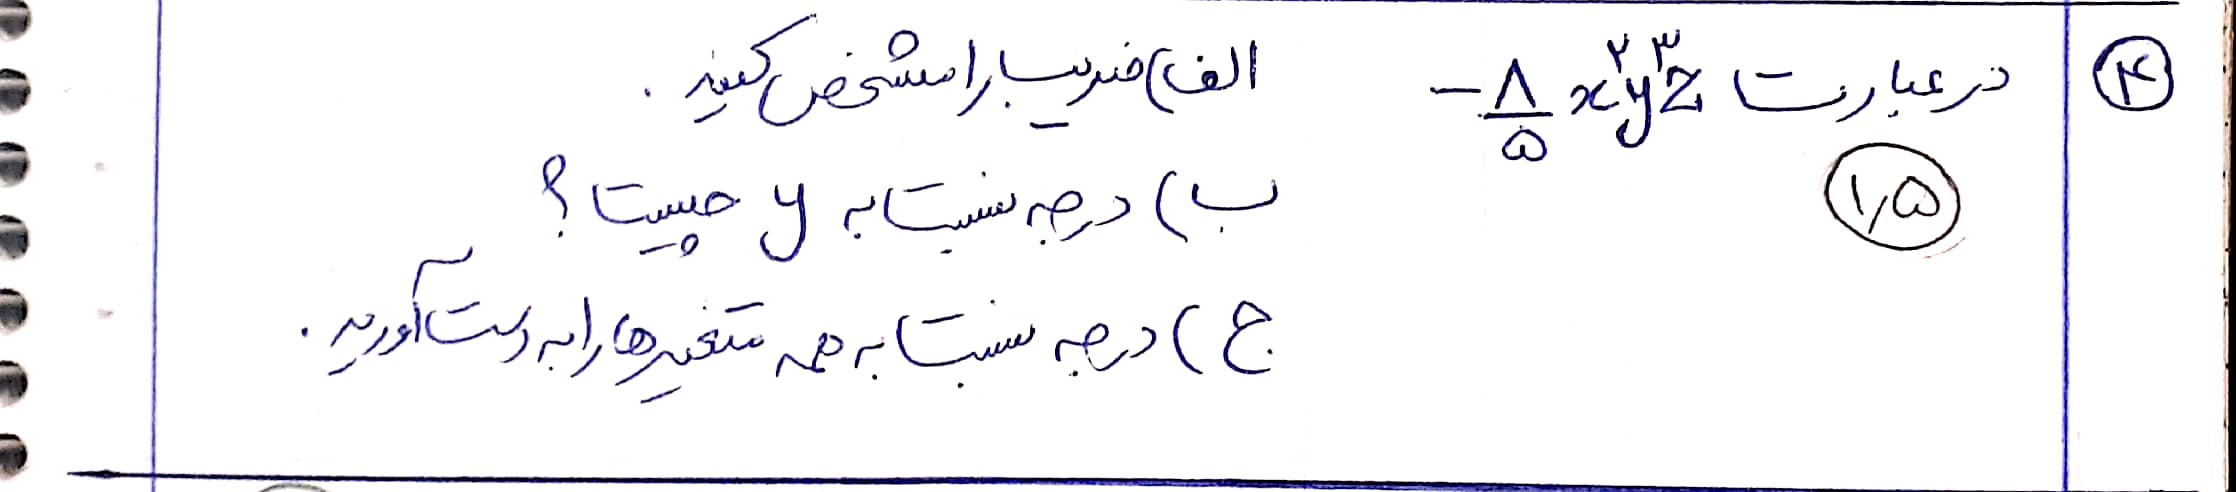 ۴ در عبارت -۸/۵ x²y³z الف) ضریب را مشخص کنید.
۱٫۵ ب) درجه نسبت به y چیست؟
ج) درجه نسبت به همه متغیرها را به دست آورید.